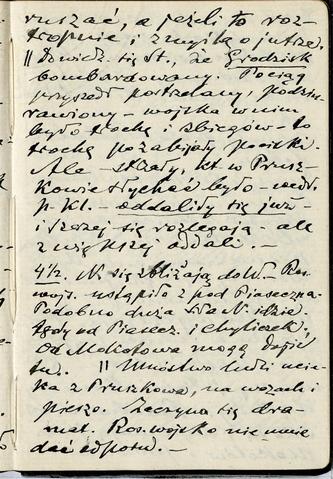 ruszać, a jeżeli to roz-
tropnie i zmyśla o jutrze.
|| Dowiedz. się St., że Grodzisk
bombardowany. Pociąg
przyszedł postrzelany, podziu-
rawiony – wojska w nim
było trochę i zbiegów – to
trochę pozabijały pociski.
Ale – strzały, kt. w Prusz-
kowie słychać było – wedł.
p. Kl. – oddaliły się już –
i szerzej się rozlegają – ale
z większej oddali. –
4½. N. się zbliżają do W. – Ros.
wojs. ustąpiło z pod Piaseczna.
Podobno duża siła N. idzie
tędy od Piasecz. i Chyliczek.
Od Mokotowa mogą dojść
tu. || Mnóstwo ludzi ucie-
ka z Pruszkowa, na wozach i
pieszo. Zaczyna się dra-
mat. Ros. wojsko nie umie
dać odporu. –